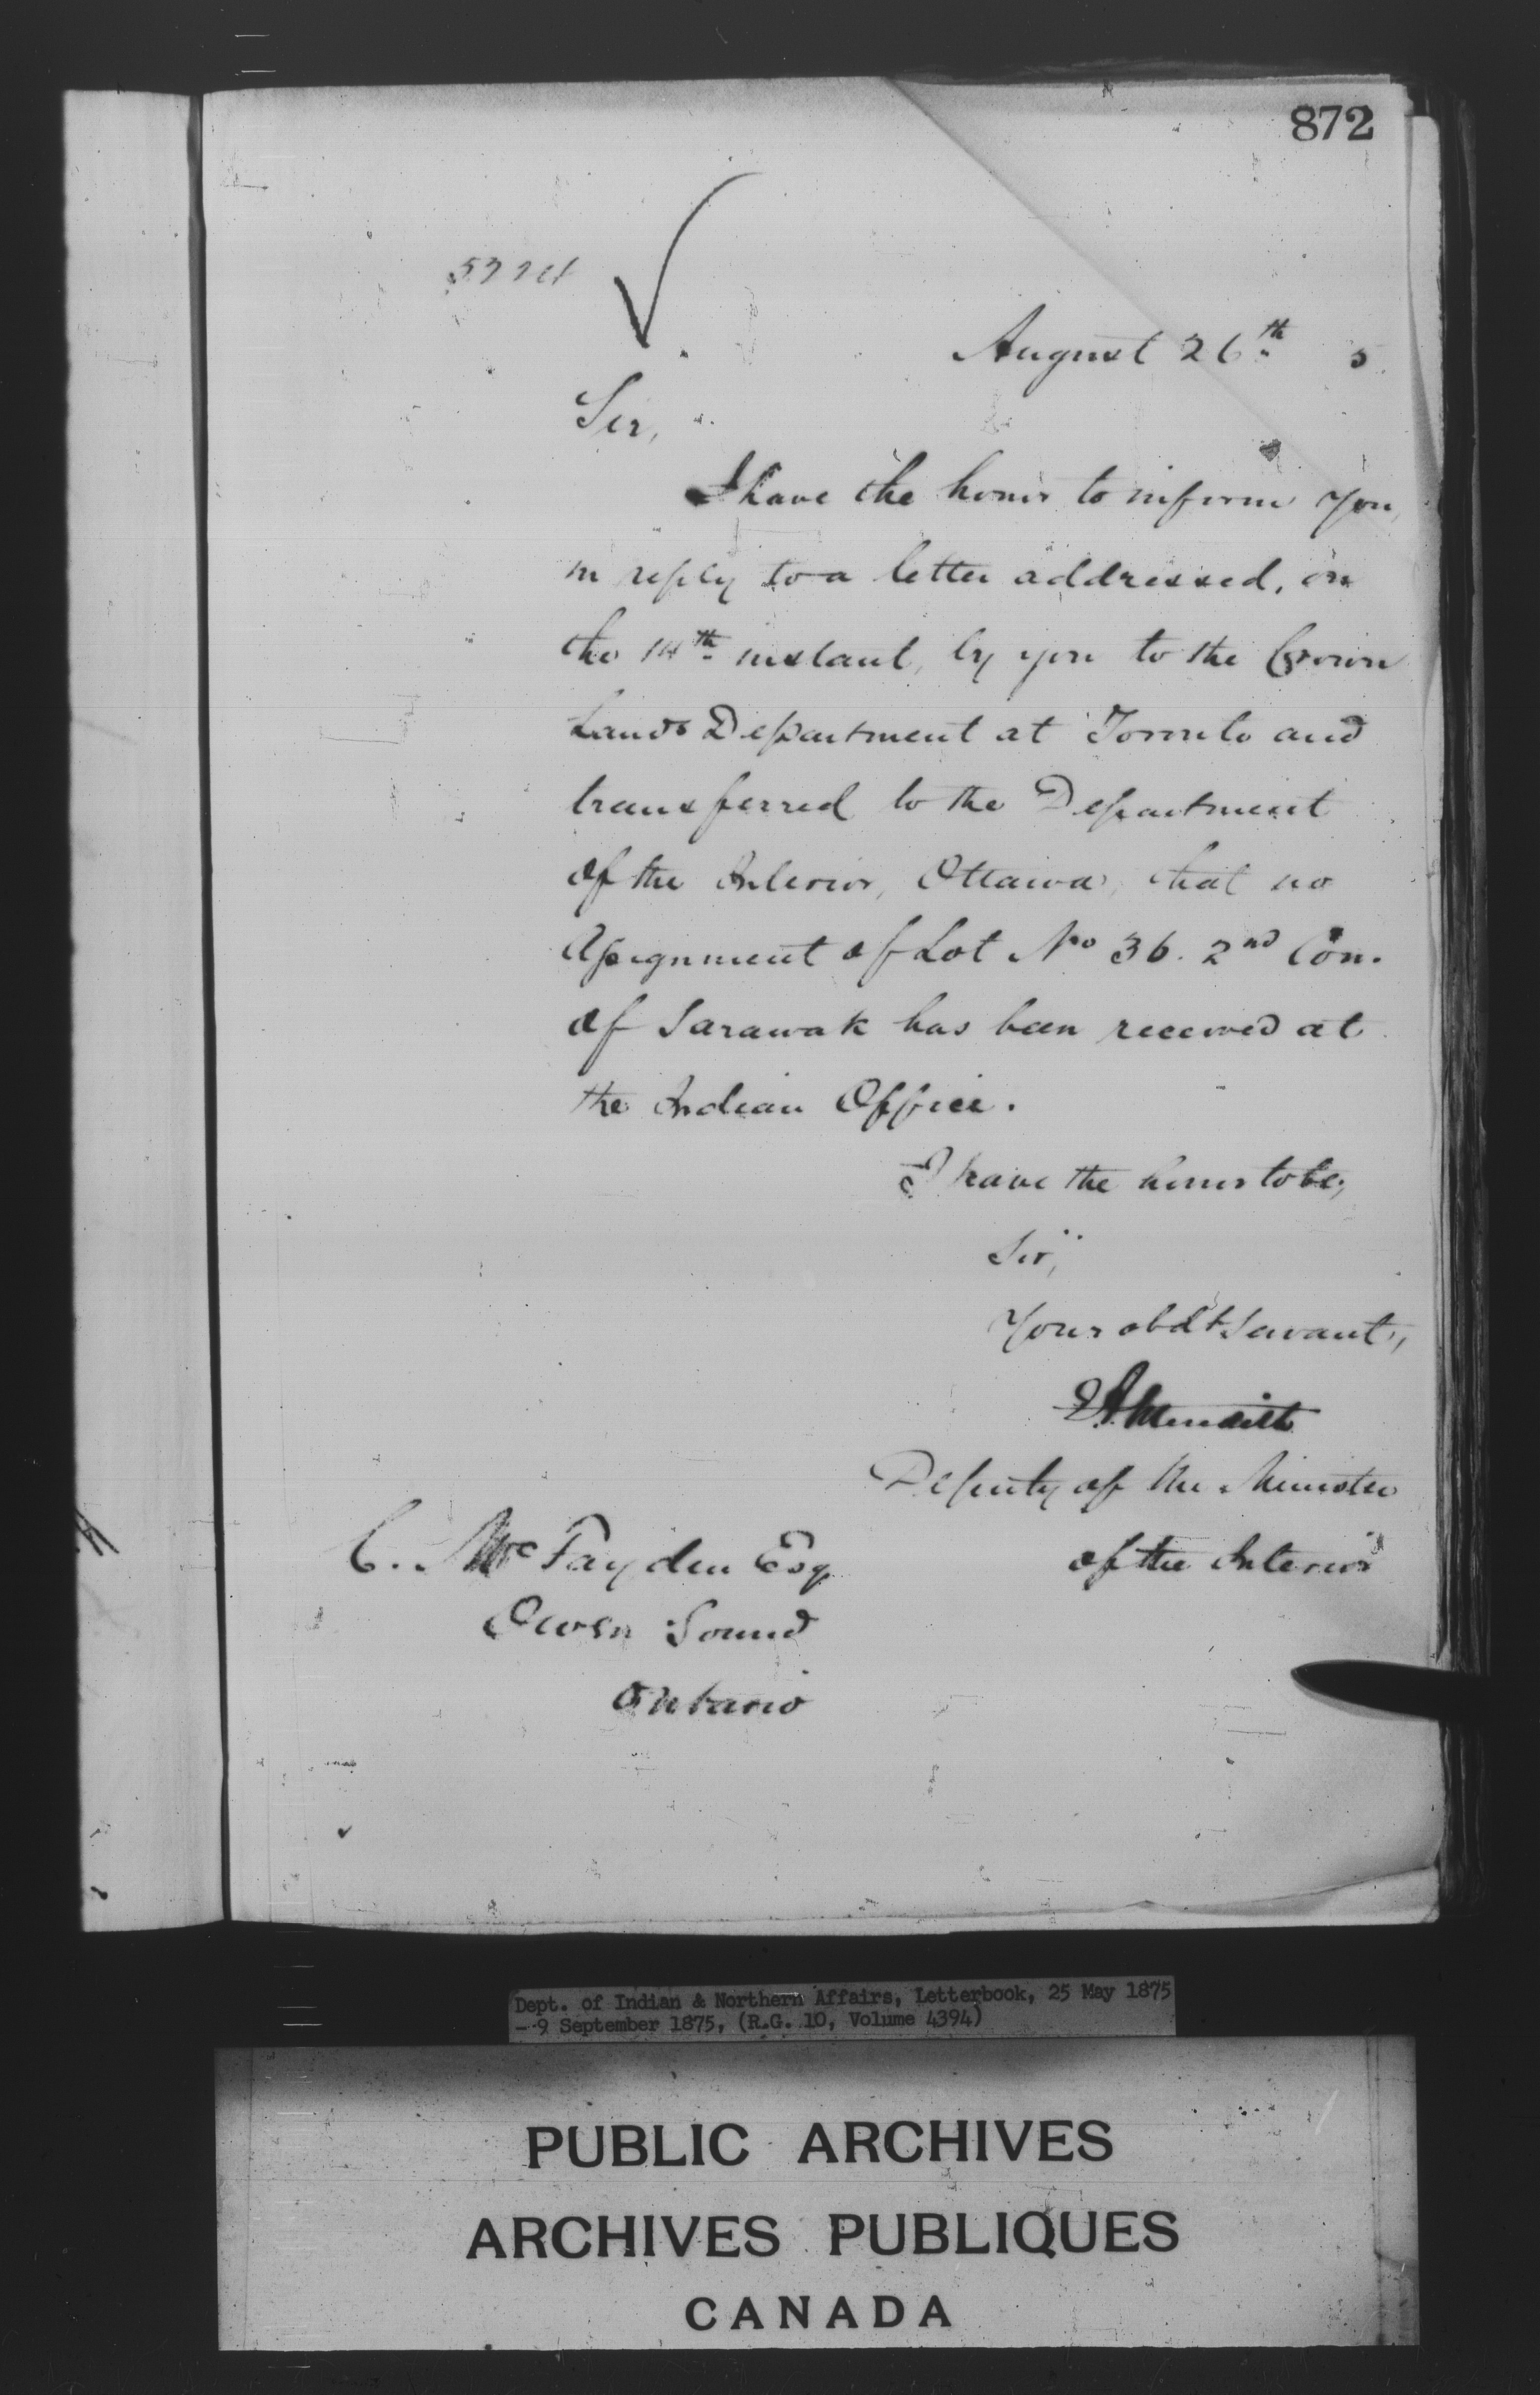 872
August 26th 5
Sir,
I have the honor to inform you,
in reply to a letter addressed, on
the 14th instant, by you to the Crown
Lands Department at Toronto and
transferred to the Department
of the Interior, Ottawa, that no
Assignment of Lot No 36. 2nd Con.
of Sarawak has been received at
the Indian Office.
I have the honor to be,
Sir,
Your obdt Servant,
Deputy of the Minister
of the Interior
C. McFayden Esq
Owen Sound
Ontario
Dept. of Indian & Northern Affairs, Letterbook, 25 May 1875
- 9 September 1875, (R.G. 10, Volume 4394)
PUBLIC ARCHIVES
ARCHIVES PUBLIQUES
CANADA